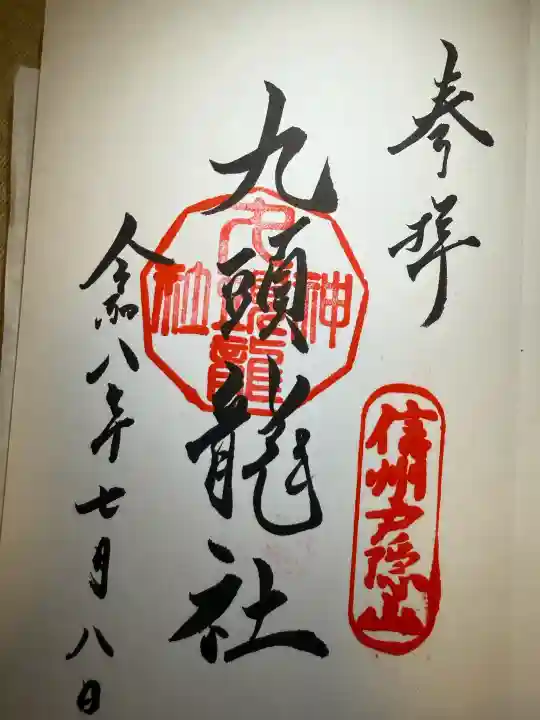 奉拝
信州戸隠山
九頭龍社
九頭龍神社
令和八年七月八日